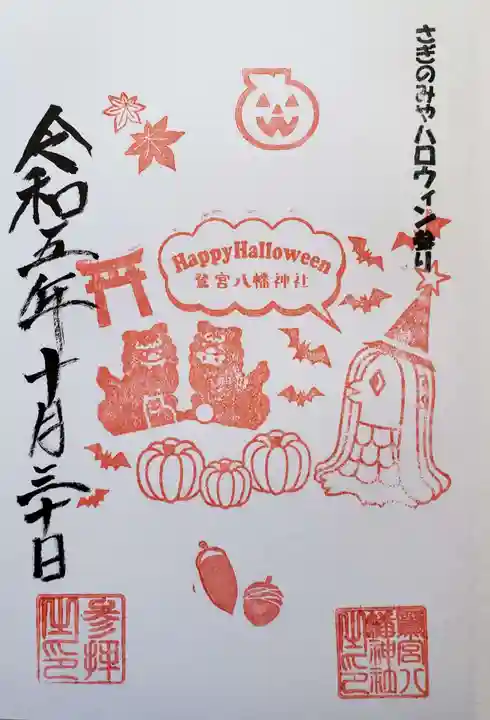 さぎのみやハロウィン参り
Happy Halloween
鷺宮八幡神社
令和五年十月三十日
参拝之印
鷺宮八幡神社之印